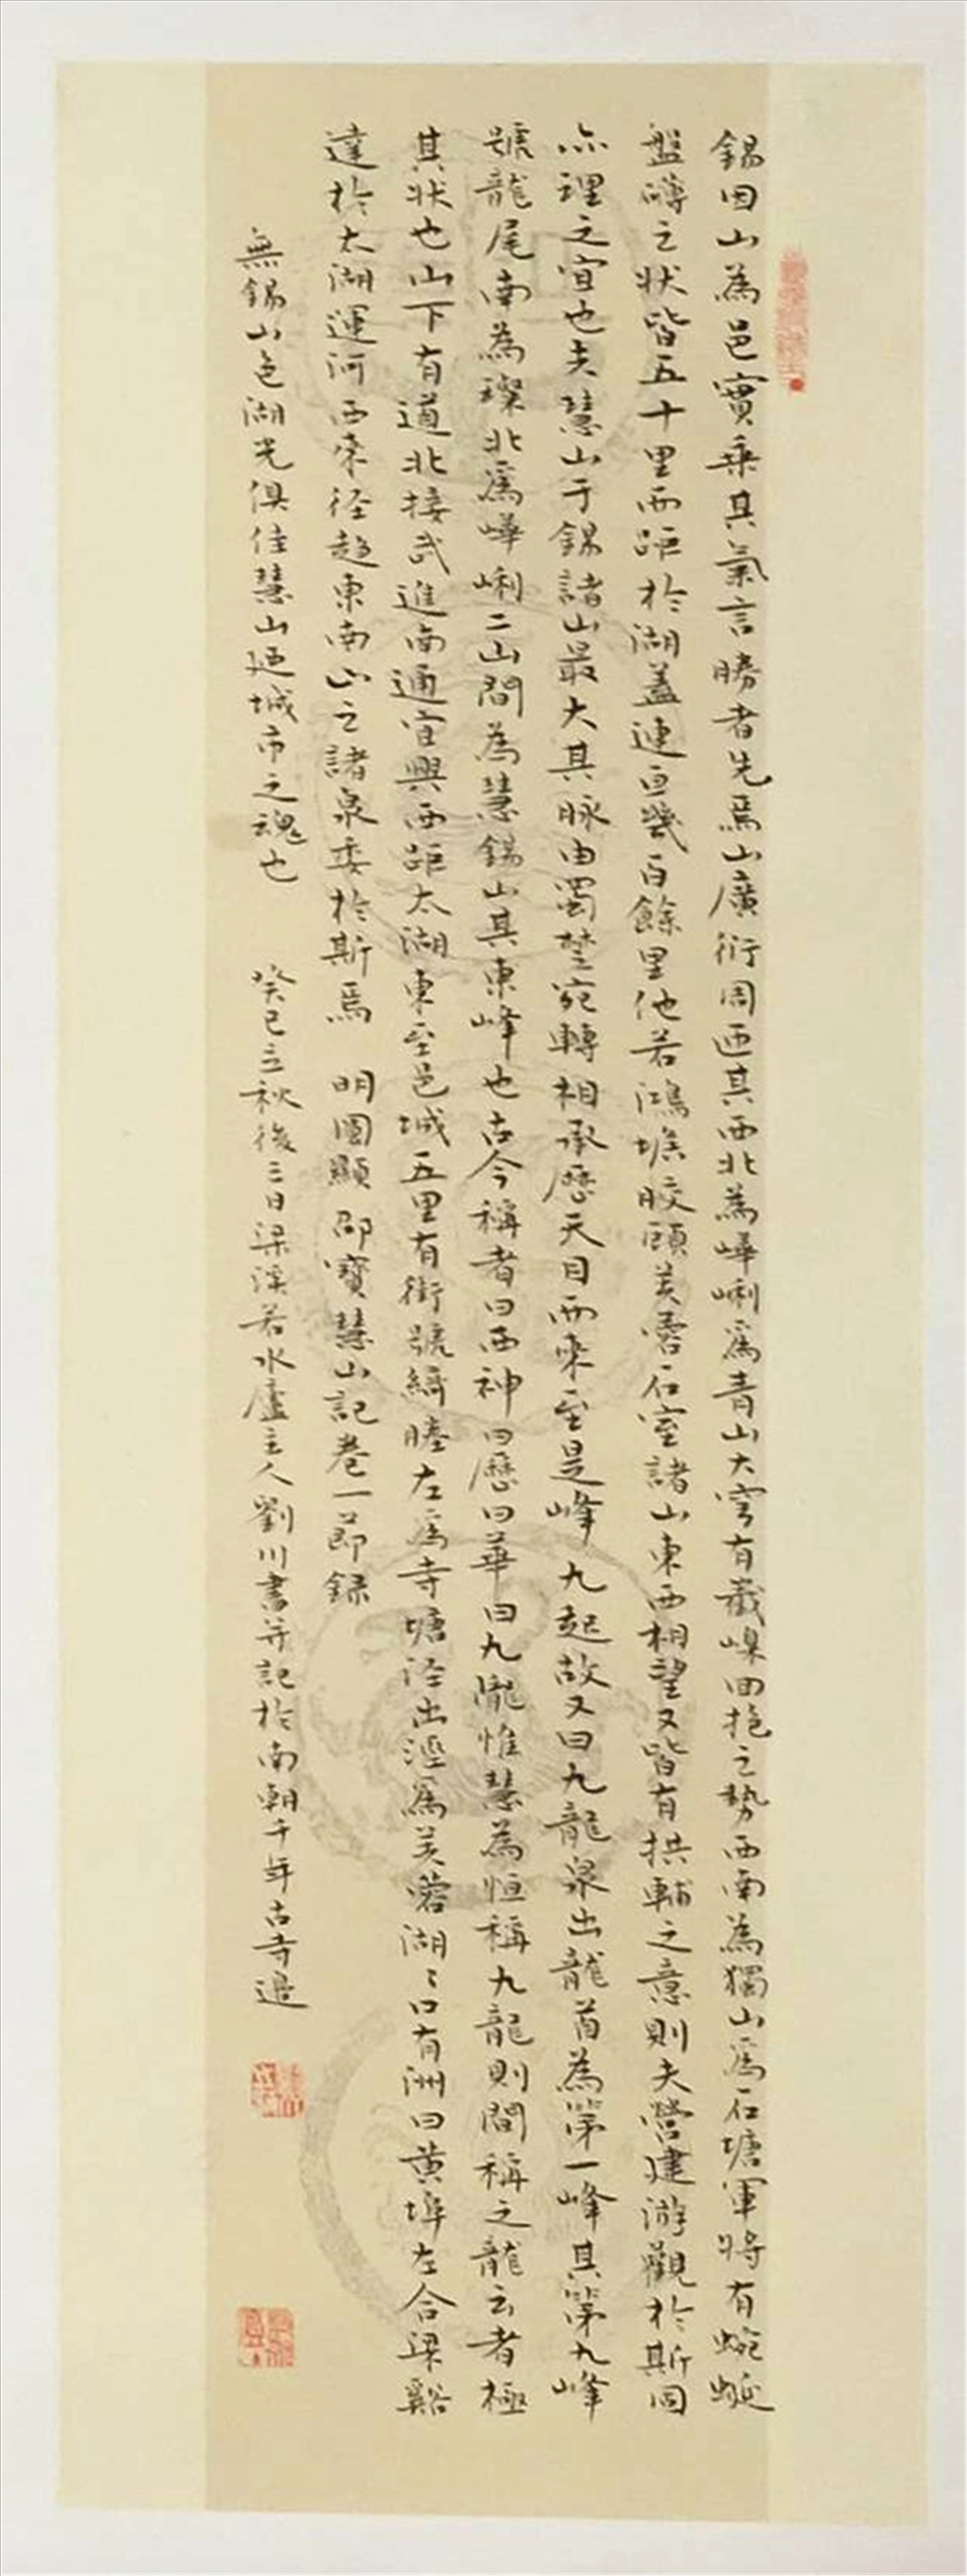 錫因山為邑實乘其氣言勝者先焉山廣衍周匝其西北為嶂峢為青山大雩有嶻嵲回抱之勢西南為獨山為石塘軍將有蜿蜒
盤礴之狀皆五十里而距於湖蓋連亘幾百餘里他若鴻墩膠頤芙蓉石室諸山東西相望又皆有拱輔之意則夫營建游觀於斯固
亦理之宜也夫慧山于錫諸山最大其脉由蜀楚宛轉相承歷天目而來至是峰九起故又曰九龍泉出龍首為第一峰其第九峰
號龍尾南為璨北為嶂峢二山間為慧錫山其東峰也古今稱者曰西神曰歷曰華曰九隴惟慧為恒稱九龍則間稱之龍云者極
其狀也山下有道北接武進南通宜興西距太湖東至邑城五里有街號綺塍左為寺塘涇出涇為芙蓉湖〻口有洲曰黃埠左合梁谿
達於太湖運河西來徑趨東南山之諸泉委於斯焉 明 邵寶慧山記卷一節録
無錫山色湖光俱佳慧山廼城市之魂也 癸巳立秋後三日梁溪若水廬主人劉川書并記於南朝千年古寺邊